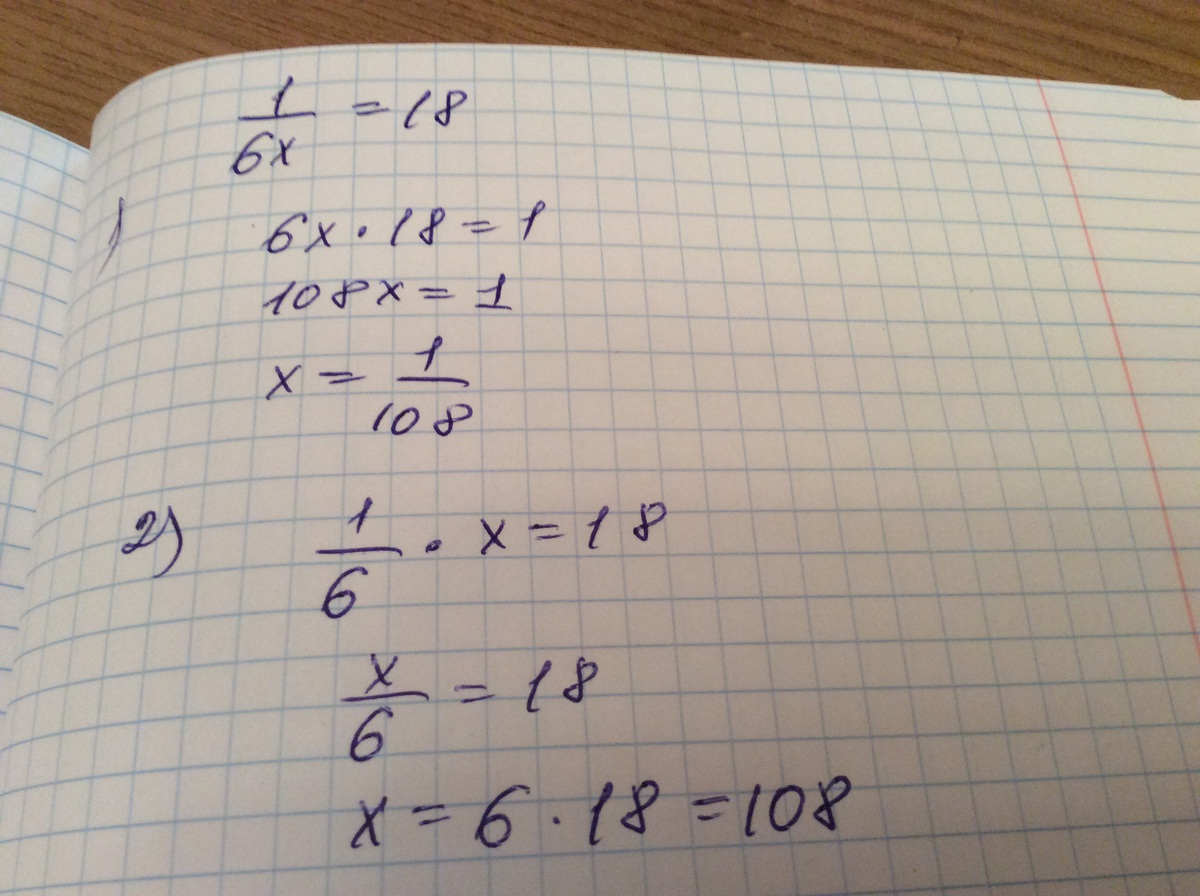 1/6x = 18
1) 6x · 18 = 1
108x = 1
x = 1/108
2) 1/6 · x = 18
x/6 = 18
x = 6 · 18 = 108